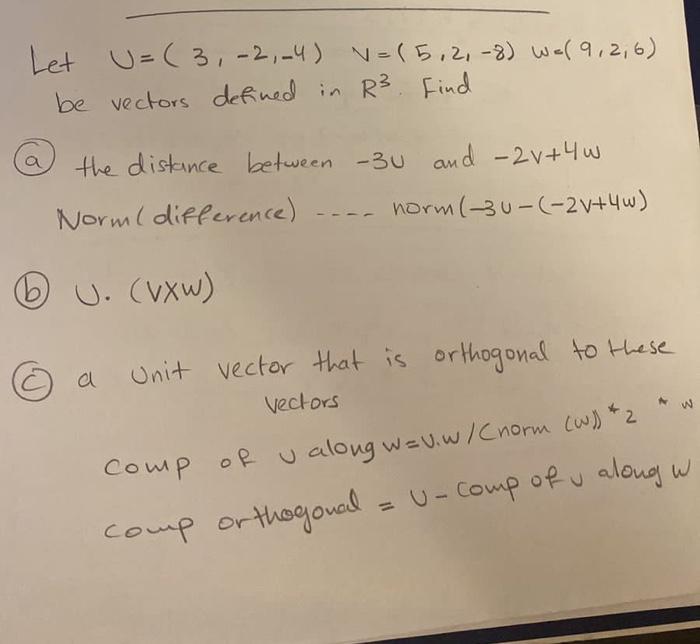 Let U=(3,-2,-4) V=(5,2,-8) W=(9,2,6)
be vectors defined in R³. Find
(a) the distance between -3U and -2V+4W
Norm(difference) ---- norm(-3U-(-2V+4W)
(b) U. (VXW)
(c) a Unit vector that is orthogonal to these
vectors
Comp of U along W=U.W/(norm (W))*2 * W
Comp orthogonal = U-Comp of U along W